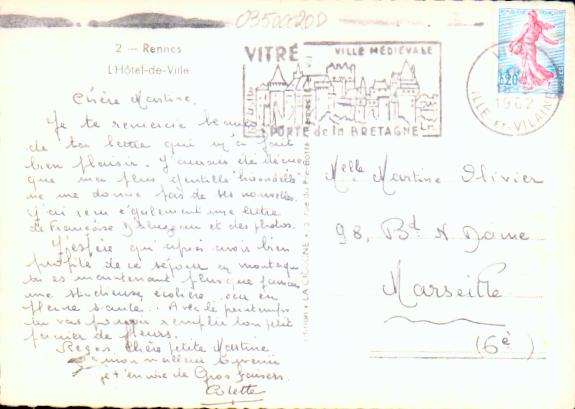 0350020D
2 - Rennes
L'Hôtel-de-Ville
VITRÉ
VILLE MÉDIÉVALE
PORTE de la BRETAGNE
0,20
1962
ILLE-ET-VILAINE
Chère Martine.
Je te remercie beaucoup
de ta lettre qui m'a fait
bien plaisir. J'aurais de
que ma plus gentille hirondelle
ne me donne pas de ses nouvelles.
J'ai reçu également une lettre
de Françoise et des photos.
J'espère qu'après avoir bien
profité de ce séjour en montagne
tu es maintenant plus que jamais
une studieuse écolière et en
pleine santé. Avec le printemps
tu vas pouvoir remplir ton petit
panier de fleurs.
Reçois, chère petite Martine
mon meilleur souvenir
et t'envoie de Gros baisers.
Colette
LA CIGOGNE
Melle Martine Olivier
98, Bd N Dame
Marseille
(6è)